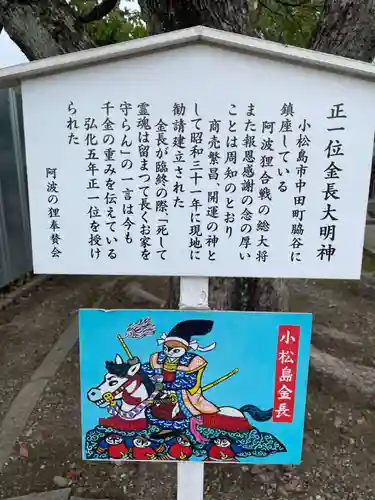 正一位金長大明神
小松島市中田町脇谷に
鎮座している
阿波狸合戦の総大将
また報恩感謝の念の厚い
ことは周知のとおり
商売繁昌、開運の神と
して昭和三十一年に現地に
勧請建立された
金長が臨終の際「死して
霊魂は留まつて長くお家を
守らん」の一言は今も
千金の重みを伝えている
弘化五年正一位を授け
られた
阿波の狸奉賛会
小松島金長